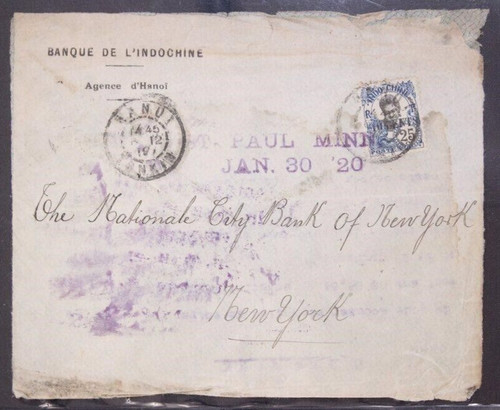 BANQUE DE L'INDOCHINE
Agence d'Hanoï
HANOI
12
TONKIN
INDO-CHINE
25
ST. PAUL MINN
JAN. 30 '20
The Nationale City Bank of New York
New York